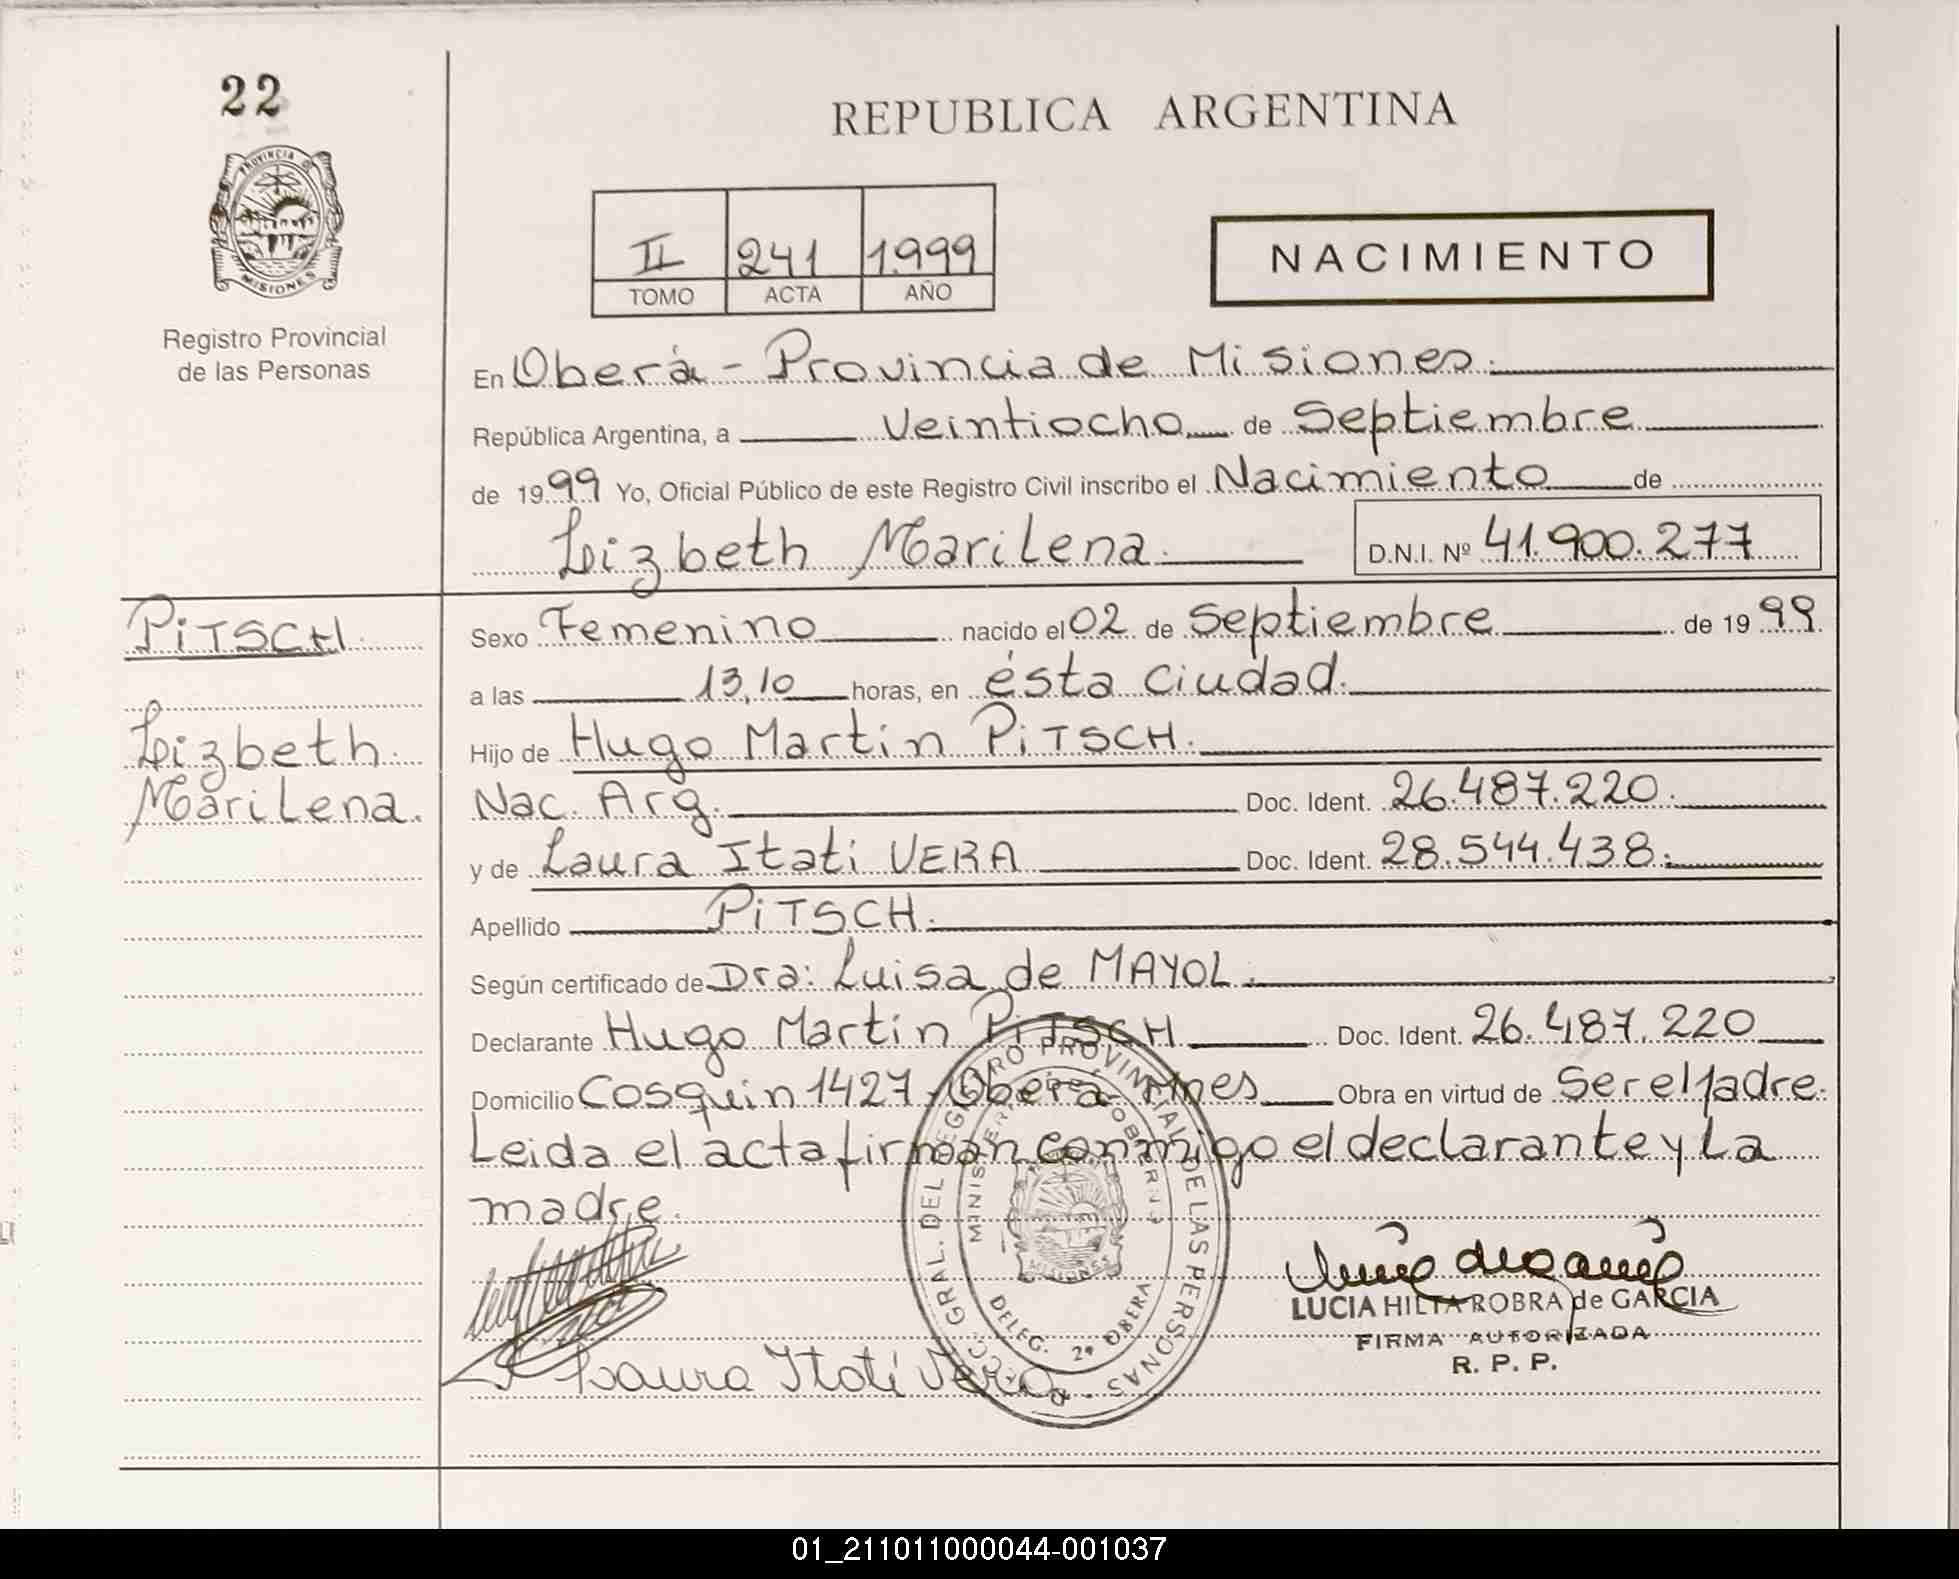 22
PROVINCIA DE
MISIONES
Registro Provincial
de las Personas
REPUBLICA ARGENTINA
II 241 1.999
TOMO ACTA AÑO
NACIMIENTO
En Oberá - Provincia de Misiones.
República Argentina, a Veintiocho de Septiembre
de 1999 Yo, Oficial Público de este Registro Civil inscribo el Nacimiento de
Lizbeth Marilena. D.N.I. Nº 41.900.277
PiTSCH.
Lizbeth.
Marilena.
Sexo Femenino nacido el 02 de Septiembre de 1999
a las 13,10 horas, en ésta Ciudad.
Hijo de Hugo Martin PiTSCH.
Nac. Arg. Doc. Ident. 26.487.220.
y de Laura Itati VERA Doc. Ident. 28.544.438.
Apellido PiTSCH.
Según certificado de Dra: Luisa de MAYOL.
Declarante Hugo Martin PiTSCH Doc. Ident. 26.487.220
Domicilio Cosquin 1427, Oberá Mnes Obra en virtud de Ser el padre.
Leida el acta firman conmigo el declarante y La
madre.
GRAL. DEL REGISTRO PROVINCIAL DE LAS PERSONAS
MINISTERIO DE GOBIERNO
MISIONES
DELEG. 2ª OBERA
Laura Itatí Vera
LUCIA HILTA ROBRA de GARCIA
FIRMA AUTORIZADA
R. P. P.
01_211011000044-001037